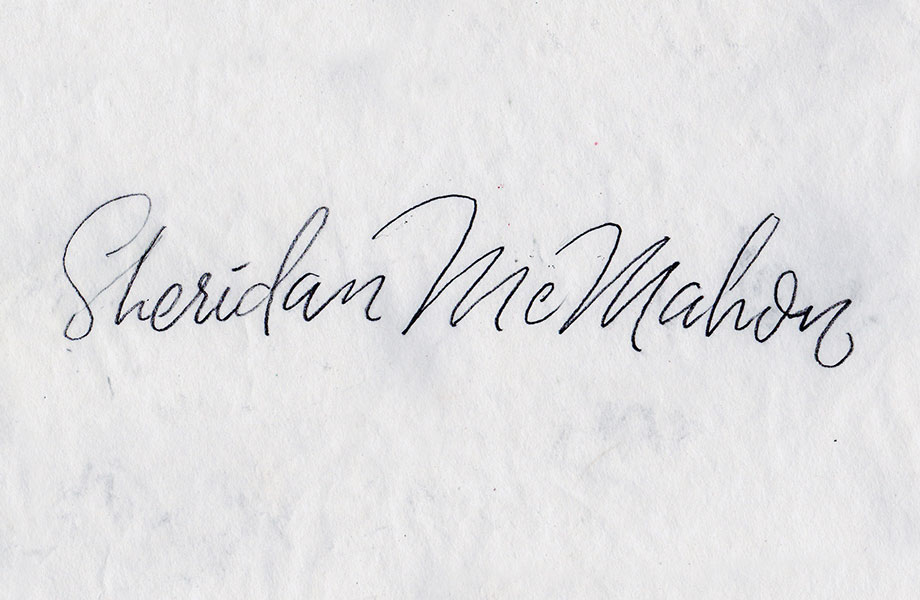 Sheridan McMahon